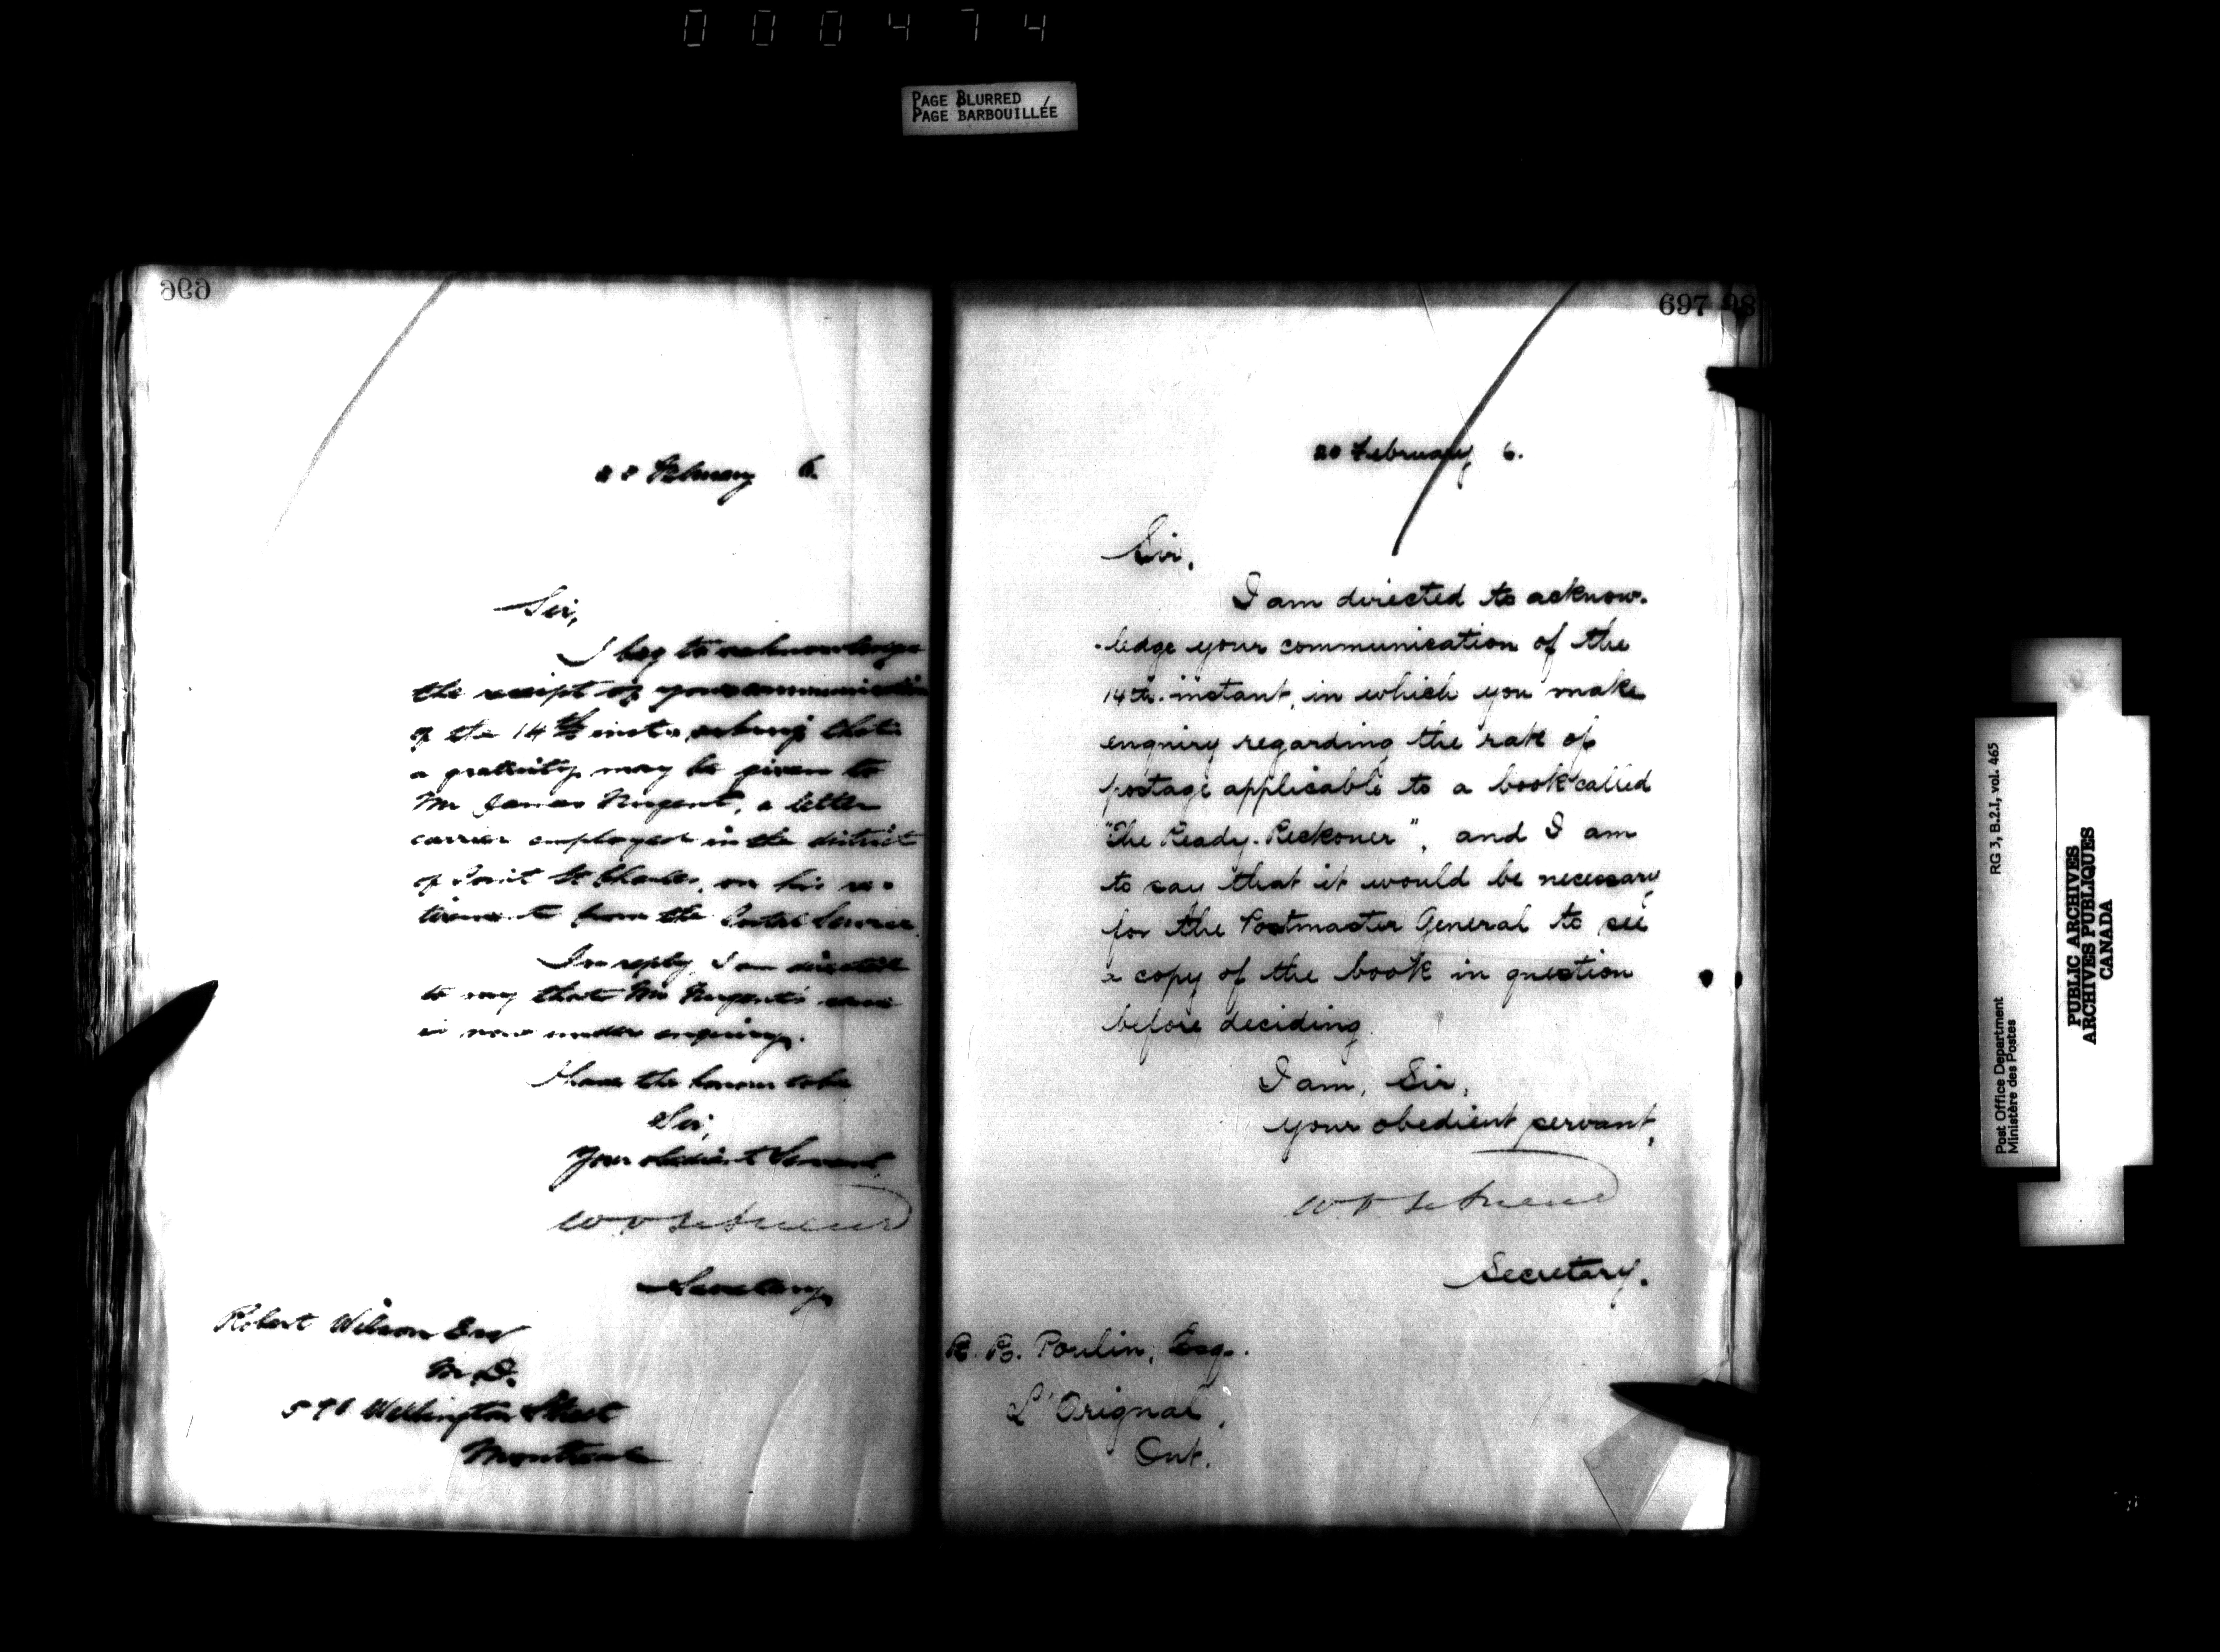 000474
PAGE BLURRED
PAGE BARBOUILLÉE
696
February 6.
Sir,
I beg to acknowledge
the receipt of your communication
of the 14th inst. asking that
a gratuity may be given to
Mr James Nugent, a letter
carrier employed in the district
of Point St Charles, on his re-
tirement from the Postal Service.
In reply, I am directed
to say that Mr Nugent's case
is now under enquiry.
I have the honour to be
Sir,
Your obedient Servant,
Secretary.
Robert Wilson Esq
M.D.
Wellington Street
Montreal
697 98
20 February, 6.
Sir,
I am directed to acknow-
-ledge your communication of the
14th. instant, in which you make
enquiry regarding the rate of
postage applicable to a book called
"The Ready-Reckoner", and I am
to say that it would be necessary
for the Postmaster General to see
a copy of the book in question
before deciding.
I am, Sir,
your obedient servant,
Secretary.
R. B. Poulin, Esq.
L'Orignal,
Ont.
Post Office Department RG 3, B.2.I, vol. 465
Ministère des Postes
PUBLIC ARCHIVES
ARCHIVES PUBLIQUES
CANADA